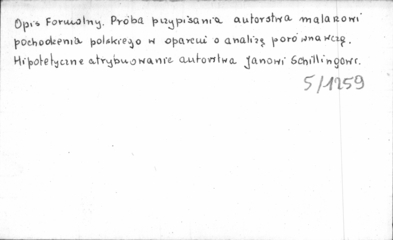 Opis Formalny. Próba przypisania autorstwa malarzowi
pochodzenia polskiego w oparciu o analizę porównawczą.
Hipotetyczne atrybuowanie autorstwa Janowi Schillingowi.
5/1259